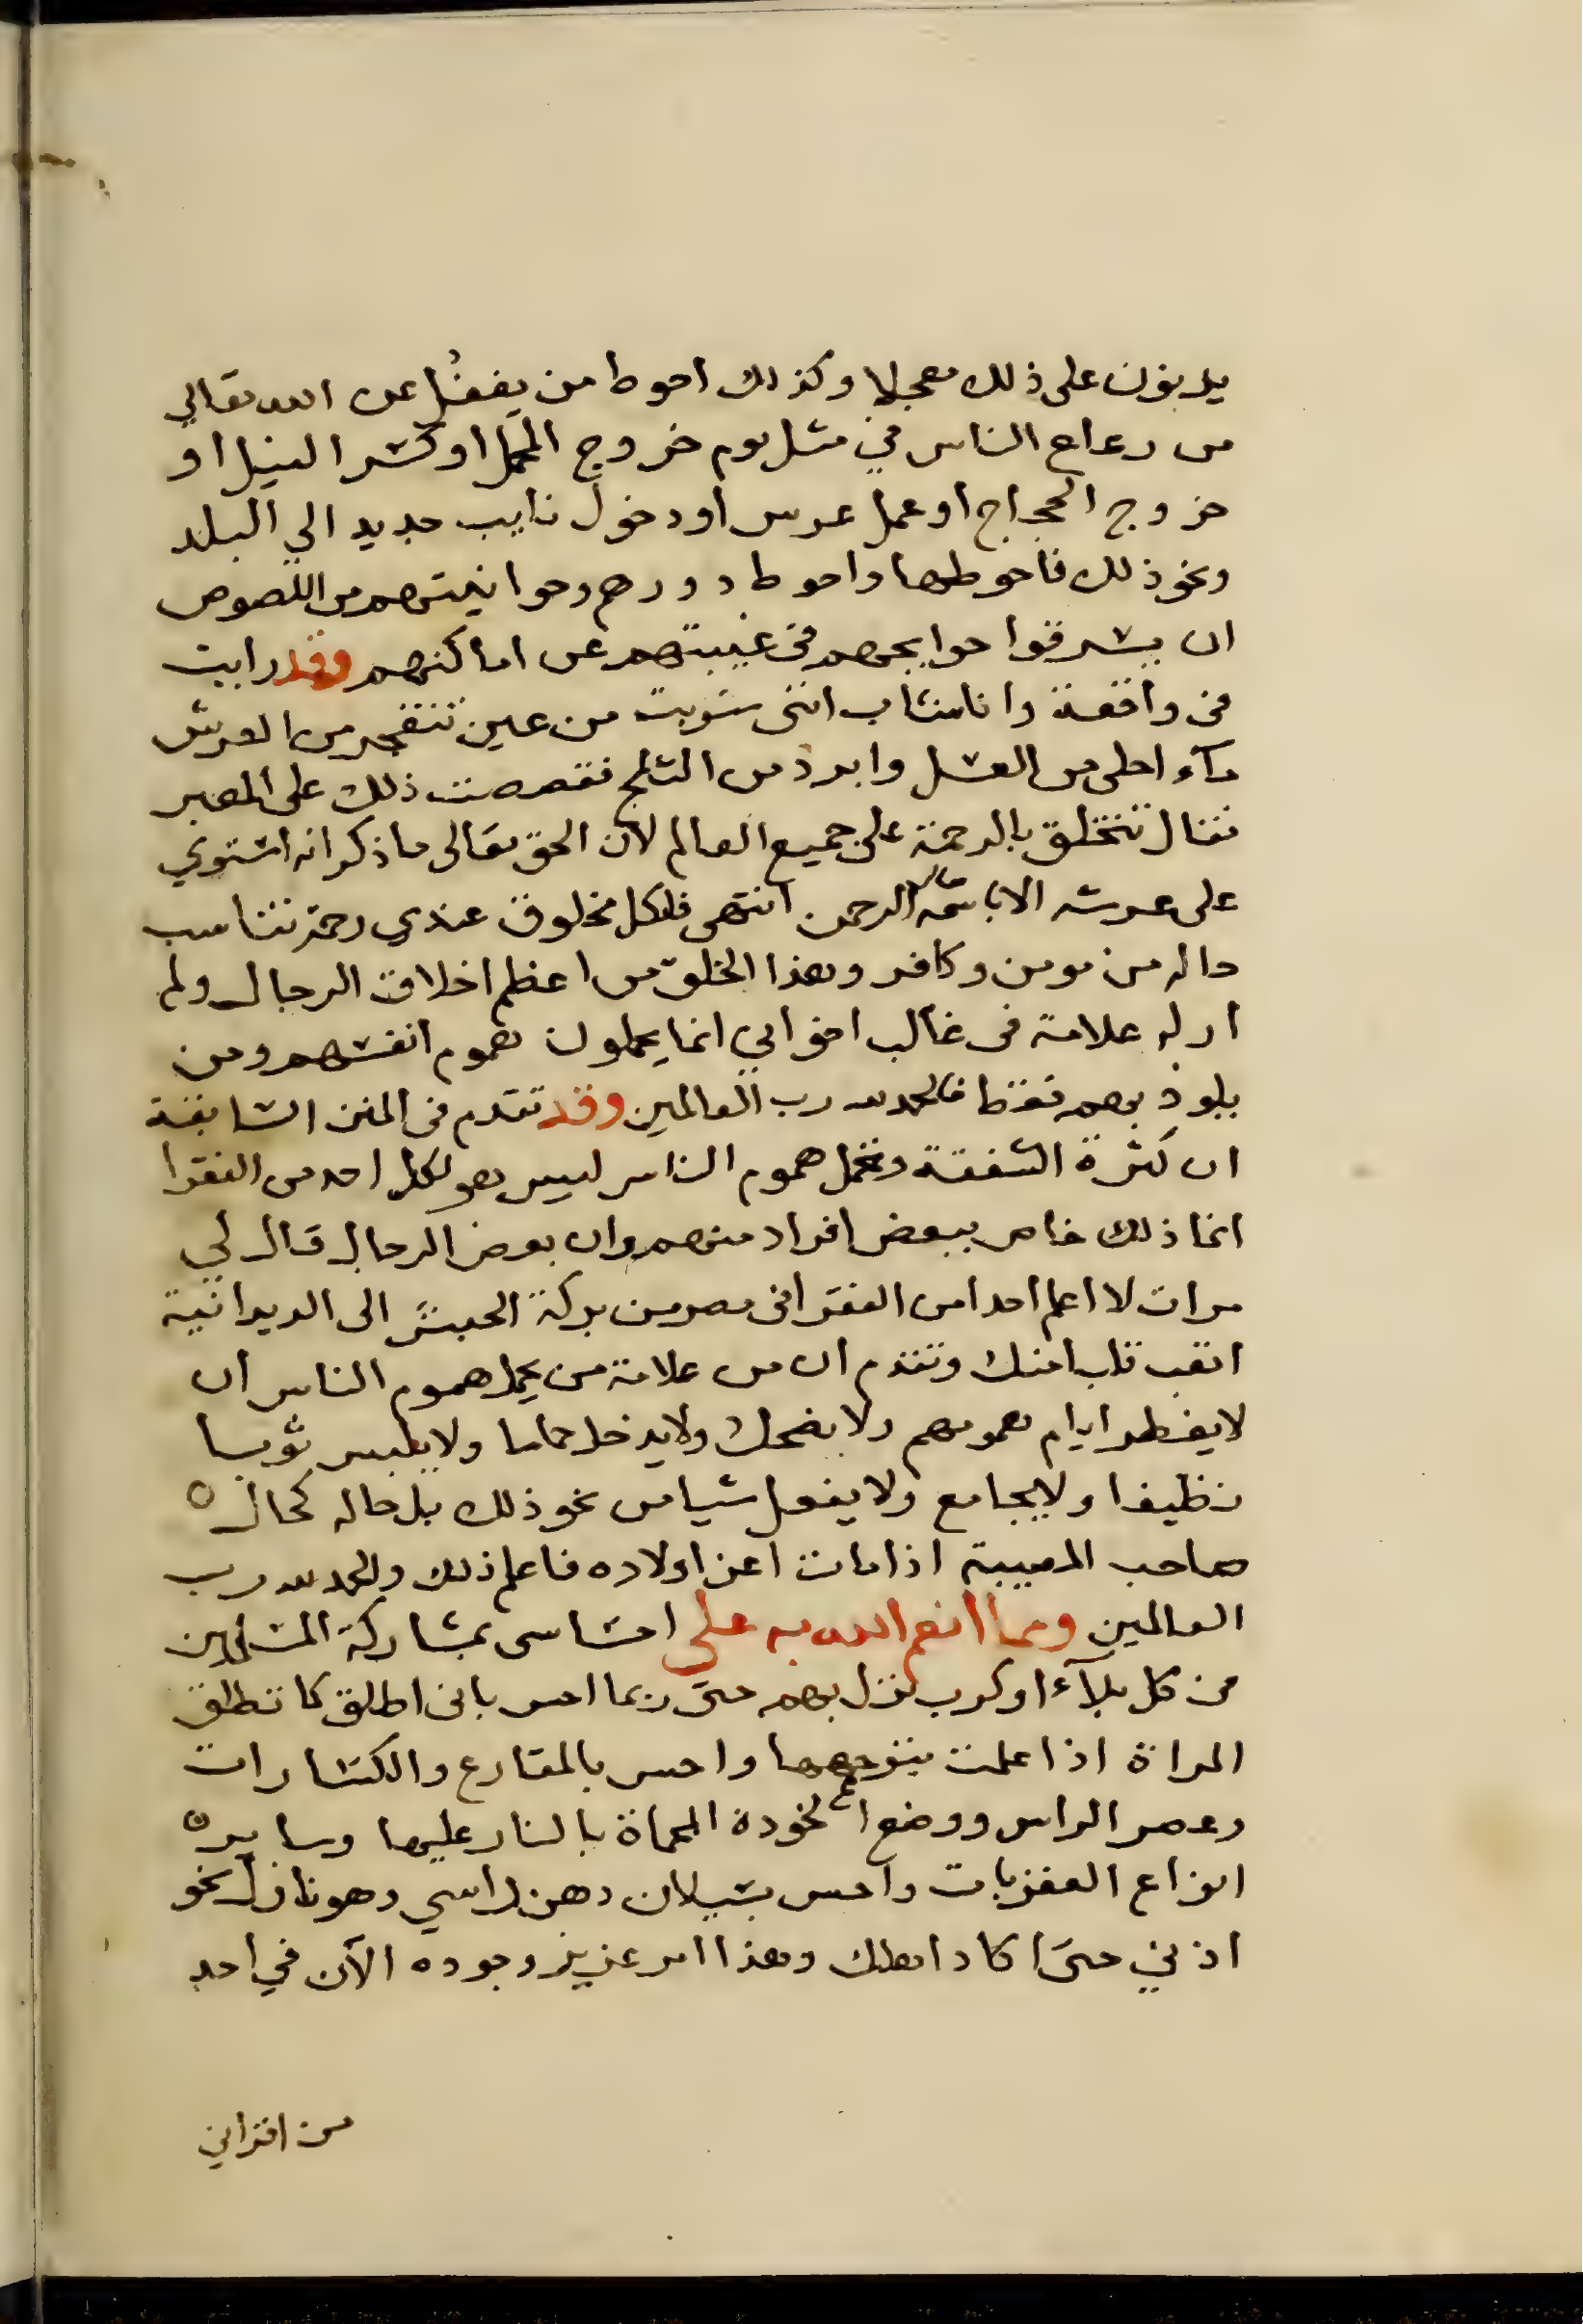 يدبون على ذلك معجلا وكذلك احوط من يغفل عن الله تعالي
من رعاع الناس في مثل يوم خروج المحمل او كسر النيل او
خروج الحجاج او عمل عرس او دخول نايب جديد الي البلد
ونحو ذلك فاحوطها واحوط دورهم وحوانيتهم من اللصوص
ان يسرقوا حوايجهم في غيبتهم عن اماكنهم وقد رايت
في واقعة وانا شاب انني شربت من عين تنفجر من العرش
ماء احلى من العسل وابرد من الثلج فقصصت ذلك على المعبر
فقال تتخلق بالرحمة على جميع العالم لان الحق تعالى ما ذكر انه استوي
على عرشه الا باسمه الرحمن انتهى فلكل مخلوق عندي رحمة تناسب
حاله من مومن وكافر وهذا الخلق من اعظم اخلاق الرجال ولم
ار له علامة في غالب اخواني انما يحملون هموم انفسهم ومن
يلوذ بهم فقط فالحمد لله رب العالمين وقد تقدم في المنن السابقة
ان كثرة الشفقة وتحمل هموم الناس ليس هو لكل احد من الفقرا
انما ذلك خاص ببعض افراد منهم وان بعض الرجال قال لي
مرات لا اعلم احدا من الفقرا في مصر من بركة الحبش الى الريدانية
اتعب قلبا منك وتقدم ان من علامة من يحمل هموم الناس ان
لا يفطر ايام همومهم ولا يضحك ولا يدخل حماما ولا يلبس ثوبا
نظيفا ولا يجامع ولا يفعل شيا من نحو ذلك بل حاله كحال
صاحب المصيبة اذا مات اعز اولاده فاعلم ذلك والحمد لله رب
العالمين ومما انعم الله به علي احساسي بمشاركة المسلمين
في كل بلآء او كرب نزل بهم حتى ربما احس باني اطلق كما تطلق
المراة اذا علمت بتوجهها واحس بالمقارع والكسارات
وعصر الراس ووضع الخودة المحماة بالنار عليها وساير
انواع العقوبات واحس بسيلان دهن راسي وهو نازل نحو
اذني حتى اكاد اهلك وهذا امر عزيز وجوده الآن في احد
من اقراني